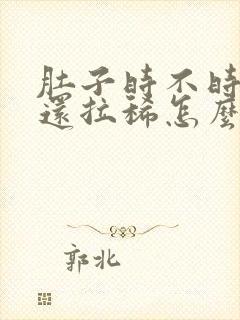 肚子時不時
還拉稀怎麼
郭北